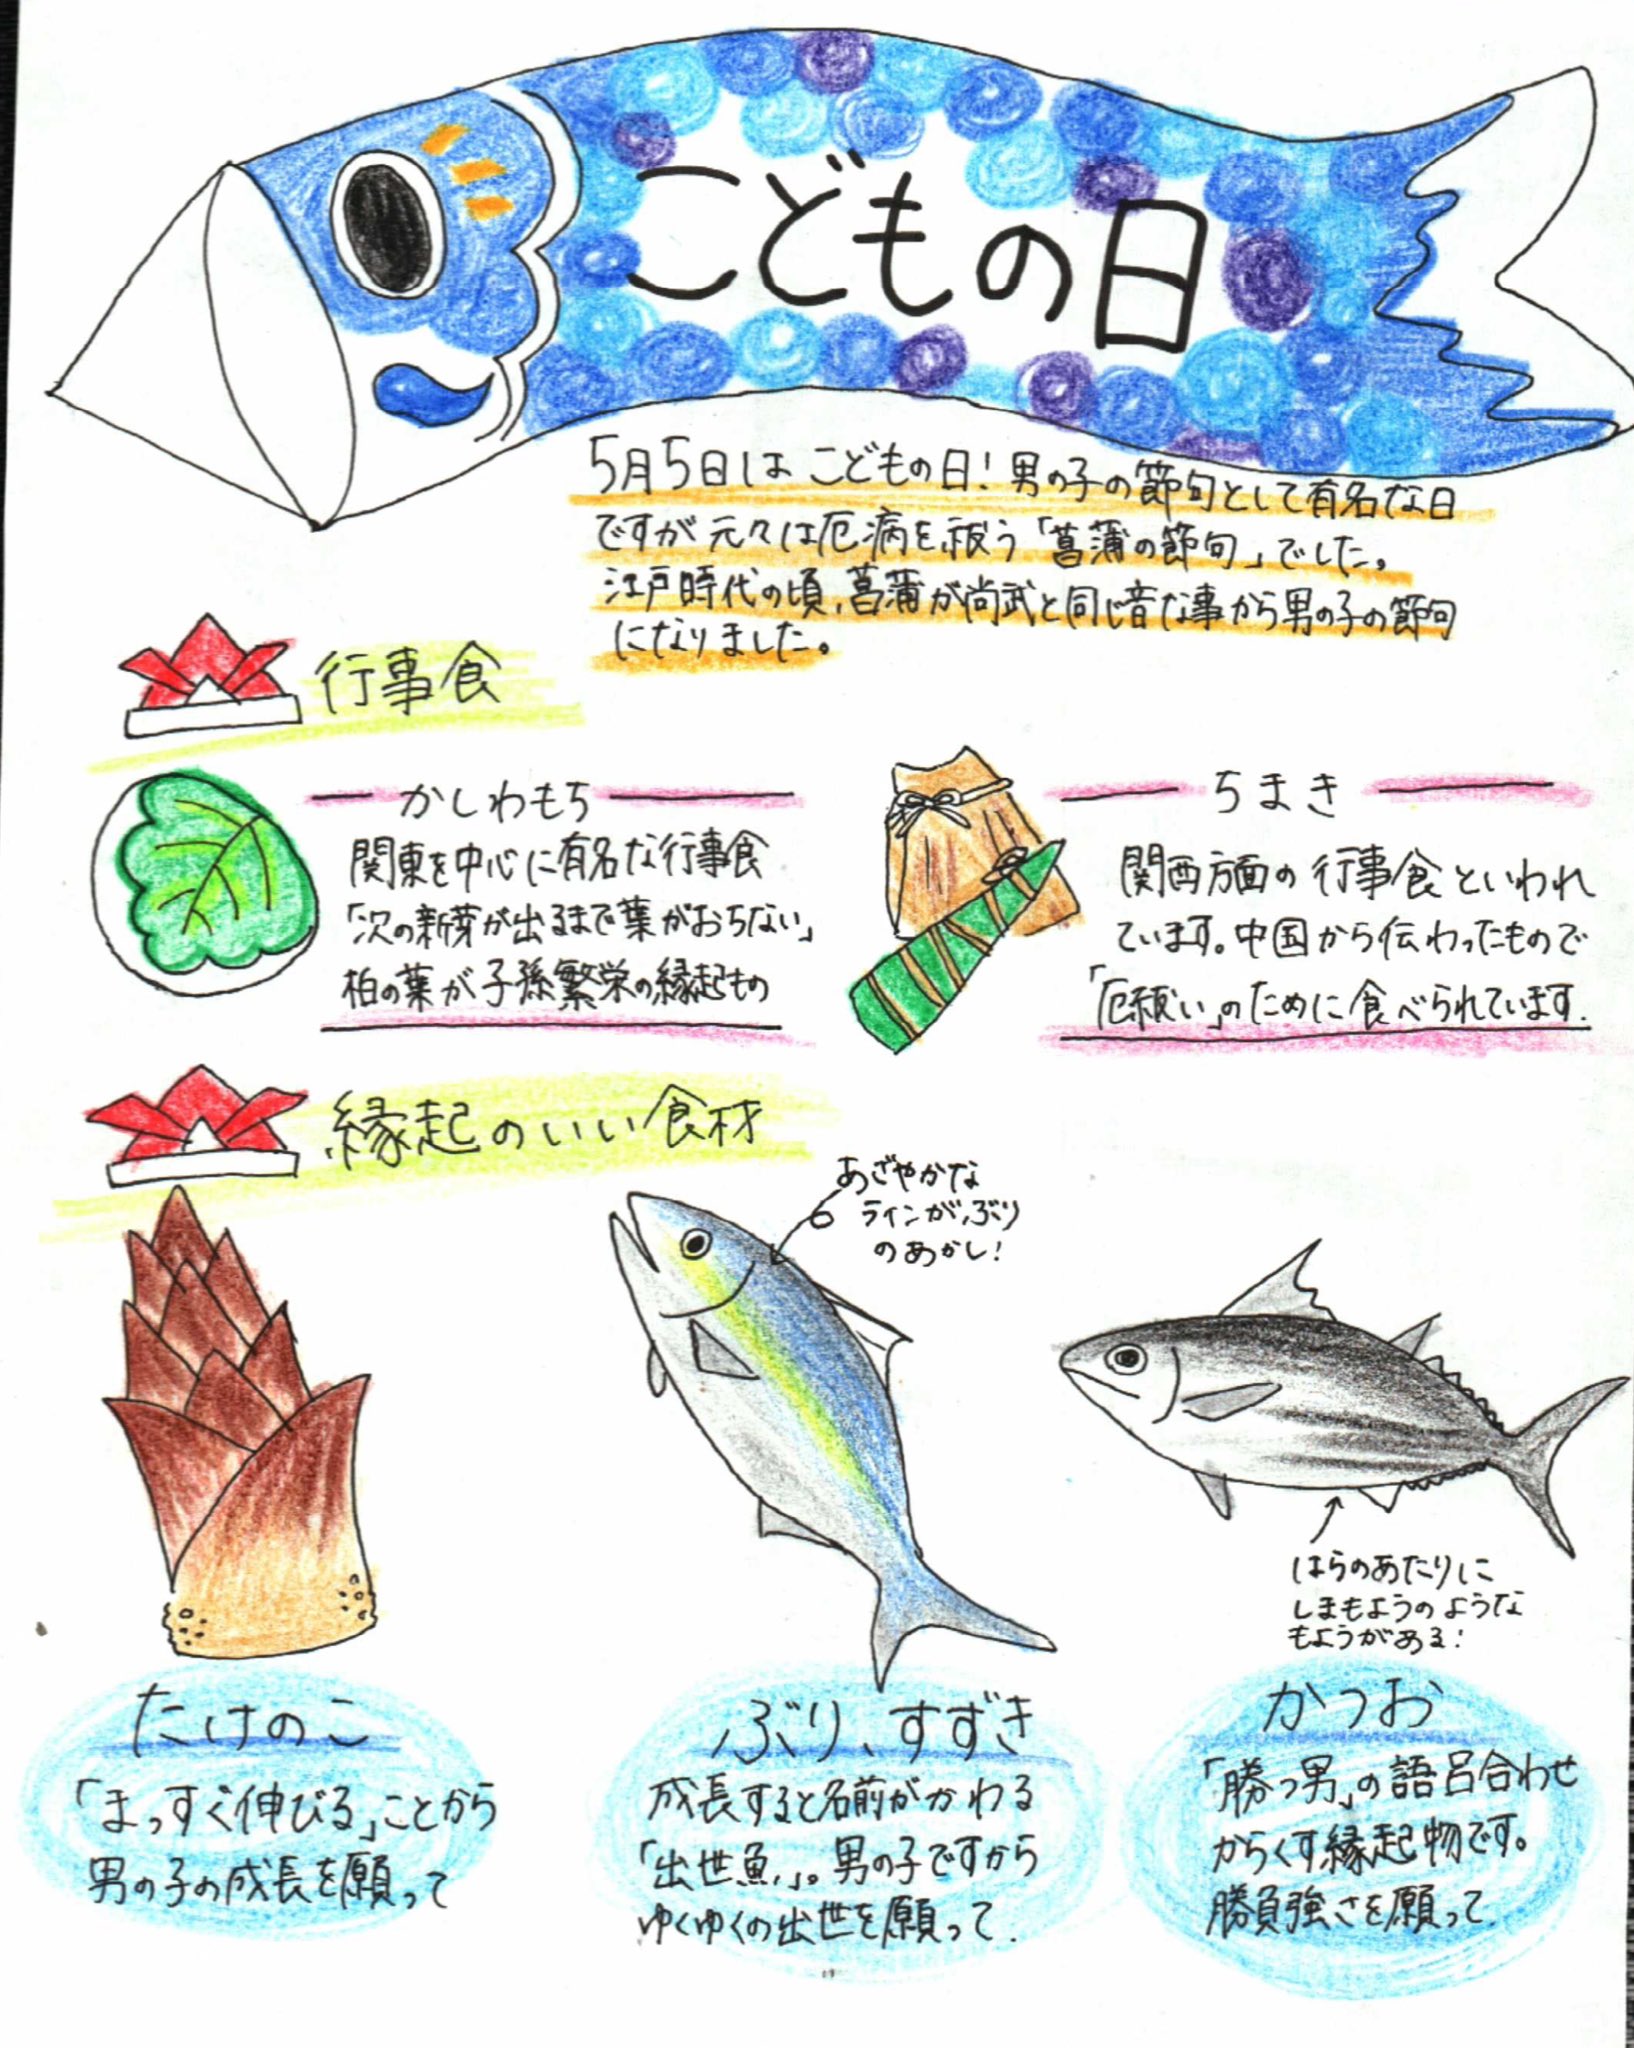 こどもの日
5月5日は こどもの日！男の子の節句として有名な日
ですが元々は厄病を祓う「菖蒲の節句」でした。
江戸時代の頃、菖蒲が尚武と同じ音な事から男の子の節句
になりました。
行事食
かしわもち
関東を中心に有名な行事食
「次の新芽が出るまで葉がおちない」
柏の葉が子孫繁栄の縁起もの
ちまき
関西方面の行事食といわれ
ています。中国から伝わったもので
「厄願い」のために食べられています.
縁起のいい食材
あざやかな
ラインがぶり
のあかし！
はらのあたりに
しまもようのような
もようがある！
たけのこ
「まっすぐ伸びる」ことから
男の子の成長を願って
ぶり、すずき
成長すると名前がかわる
「出世魚」。男の子ですから
ゆくゆくの出世を願って.
かつお
「勝つ男」の語呂合わせ
からくす縁起物です。
勝負強さを願って